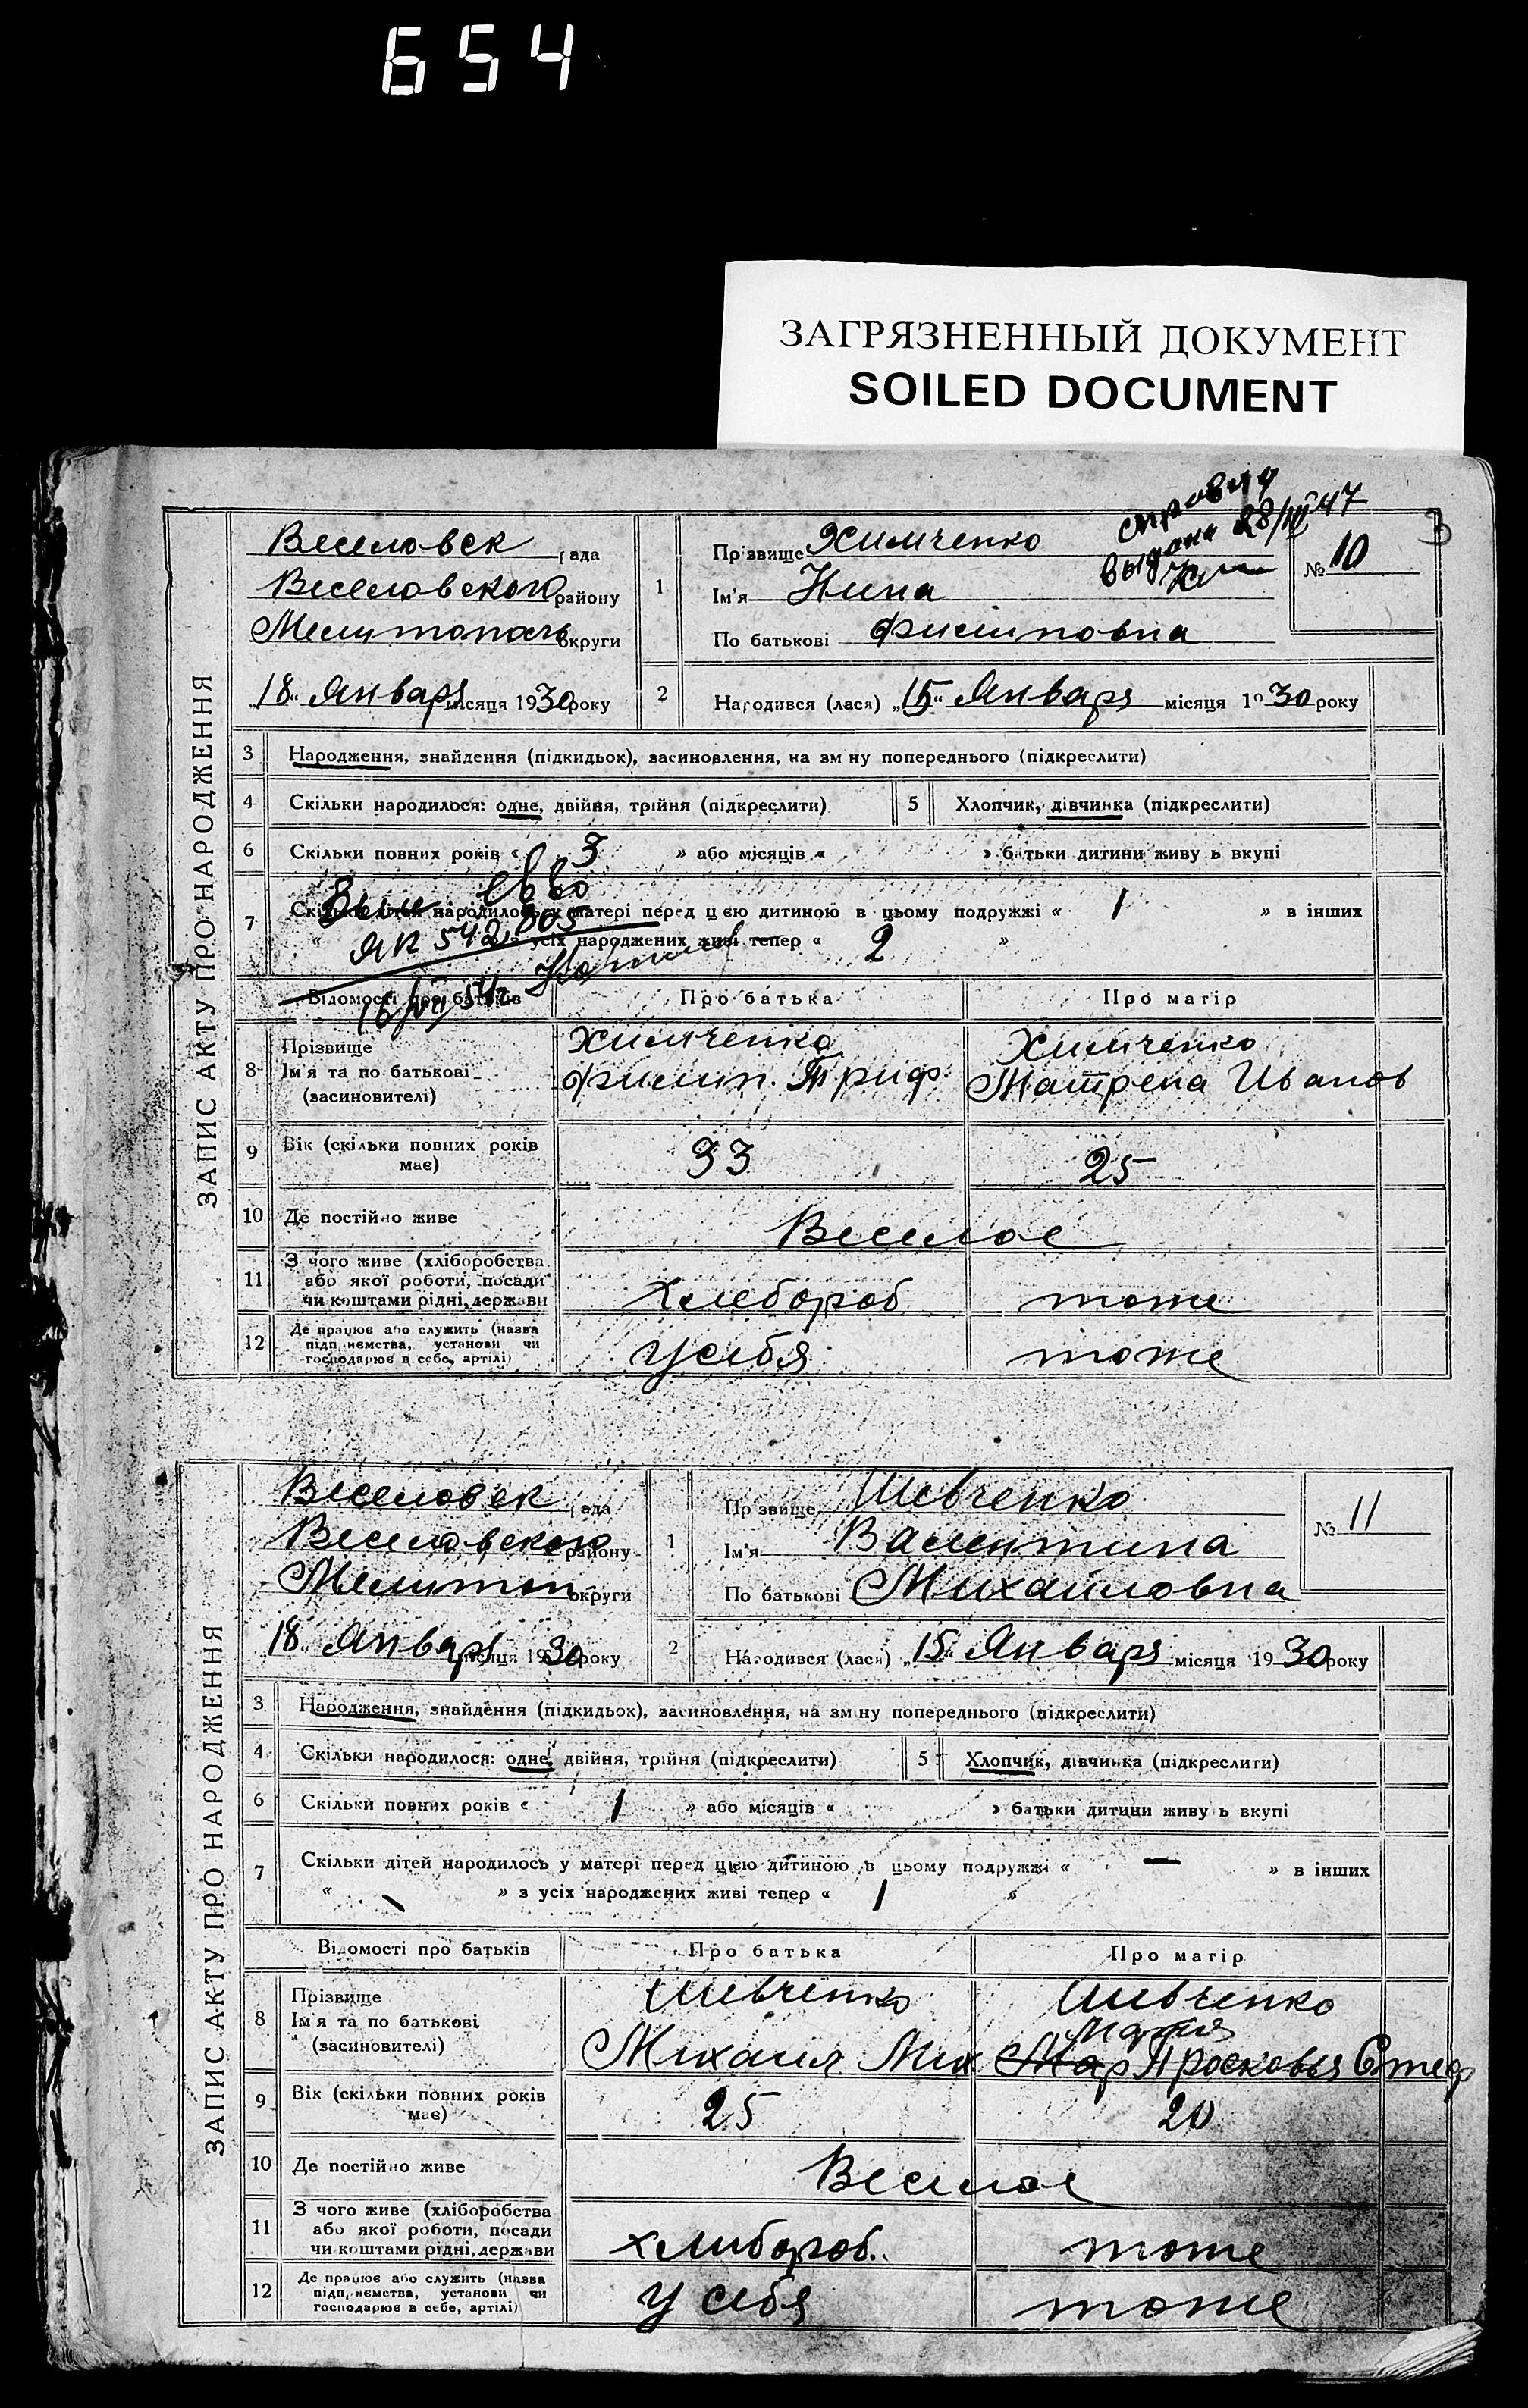 654
ЗАГРЯЗНЕННЫЙ ДОКУМЕНТ
SOILED DOCUMENT
3
ЗАПИС АКТУ ПРО НАРОДЖЕННЯ
Веселовск рада
Веселовского району
округи
„18“ Января місяця 1930 року
выдана 28/III 47
№ 10
1 Прізвище Химченко
Ім'я Нина
По батькові Филиповна
2 Народився (лася) „15“ Января місяця 1930 року
3 Народження, знайдення (підкидьок), засиновлення, на зміну попереднього (підкреслити)
4 Скільки народилося: одне, двійня, трійня (підкреслити)
5 Хлопчик, дівчинка (підкреслити)
6 Скільки повних років « 3 » або місяців « » батьки дитини живуть вкупі
7 Скільки дітей народилось у матері перед цією дитиною в цьому подружжі « 1 » в інших
« » з усіх народжених живі тепер « 2 »
ЯК 542805
16/VII 54г
Відомості про батьків Про батька Про матір
8 Прізвище
Ім'я та по батькові
(засиновителі)
Химченко
Филип. Триф.
Химченко
Матрена Иванов
9 Вік (скільки повних років
має)
33 25
10 Де постійно живе Веселое
11 З чого живе (хліборобства
або якої роботи, посади
чи коштами рідні, держави
хлебороб тоже
12 Де працює або служить (назва
підприємства, установи чи
господарює в себе, артілі)
у себя тоже
ЗАПИС АКТУ ПРО НАРОДЖЕННЯ
Веселовск рада
Веселовского району
Мелитоп округи
„18“ Января місяця 1930 року
№ 11
1 Прізвище Шевченко
Ім'я Валентина
По батькові Михайловна
2 Народився (лася) „15“ Января місяця 1930 року
3 Народження, знайдення (підкидьок), засиновлення, на зміну попереднього (підкреслити)
4 Скільки народилося: одне, двійня, трійня (підкреслити)
5 Хлопчик, дівчинка (підкреслити)
6 Скільки повних років « 1 » або місяців « » батьки дитини живуть вкупі
7 Скільки дітей народилось у матері перед цією дитиною в цьому подружжі « — » в інших
« \ » з усіх народжених живі тепер « 1 »
Відомості про батьків Про батька Про матір
8 Прізвище
Ім'я та по батькові
(засиновителі)
Шевченко
Михаил Мих
Шевченко
Мария
Мар Просковья Стеф
9 Вік (скільки повних років
має)
25 20
10 Де постійно живе Веселое
11 З чого живе (хліборобства
або якої роботи, посади
чи коштами рідні, держави
хлибороб. тоже
12 Де працює або служить (назва
підприємства, установи чи
господарює в себе, артілі)
у себя тоже